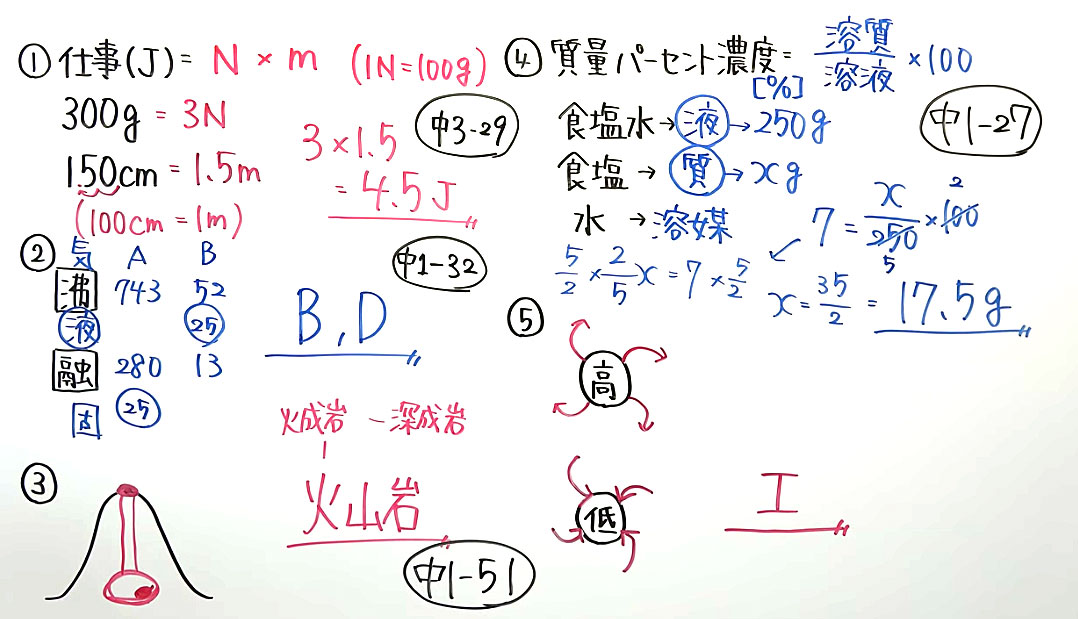 ① 仕事(J) = N × m (1N=100g)
300g = 3N
150cm = 1.5m
(100cm = 1m)
3 × 1.5
= 4.5J
中3-29
② 気 A B
沸 743 52
液 25
融 280 13
固 25
B, D
中1-32
③
火成岩 - 深成岩
火山岩
中1-51
④ 質量パーセント濃度 = 溶質/溶液 × 100
[%]
食塩水 → 液 → 250g
食塩 → 質 → xg
水 → 溶媒
中1-27
7 = x/250 × 100
2
5
5/2 × 2/5 x = 7 × 5/2
x = 35/2 = 17.5g
⑤
高
低
エ